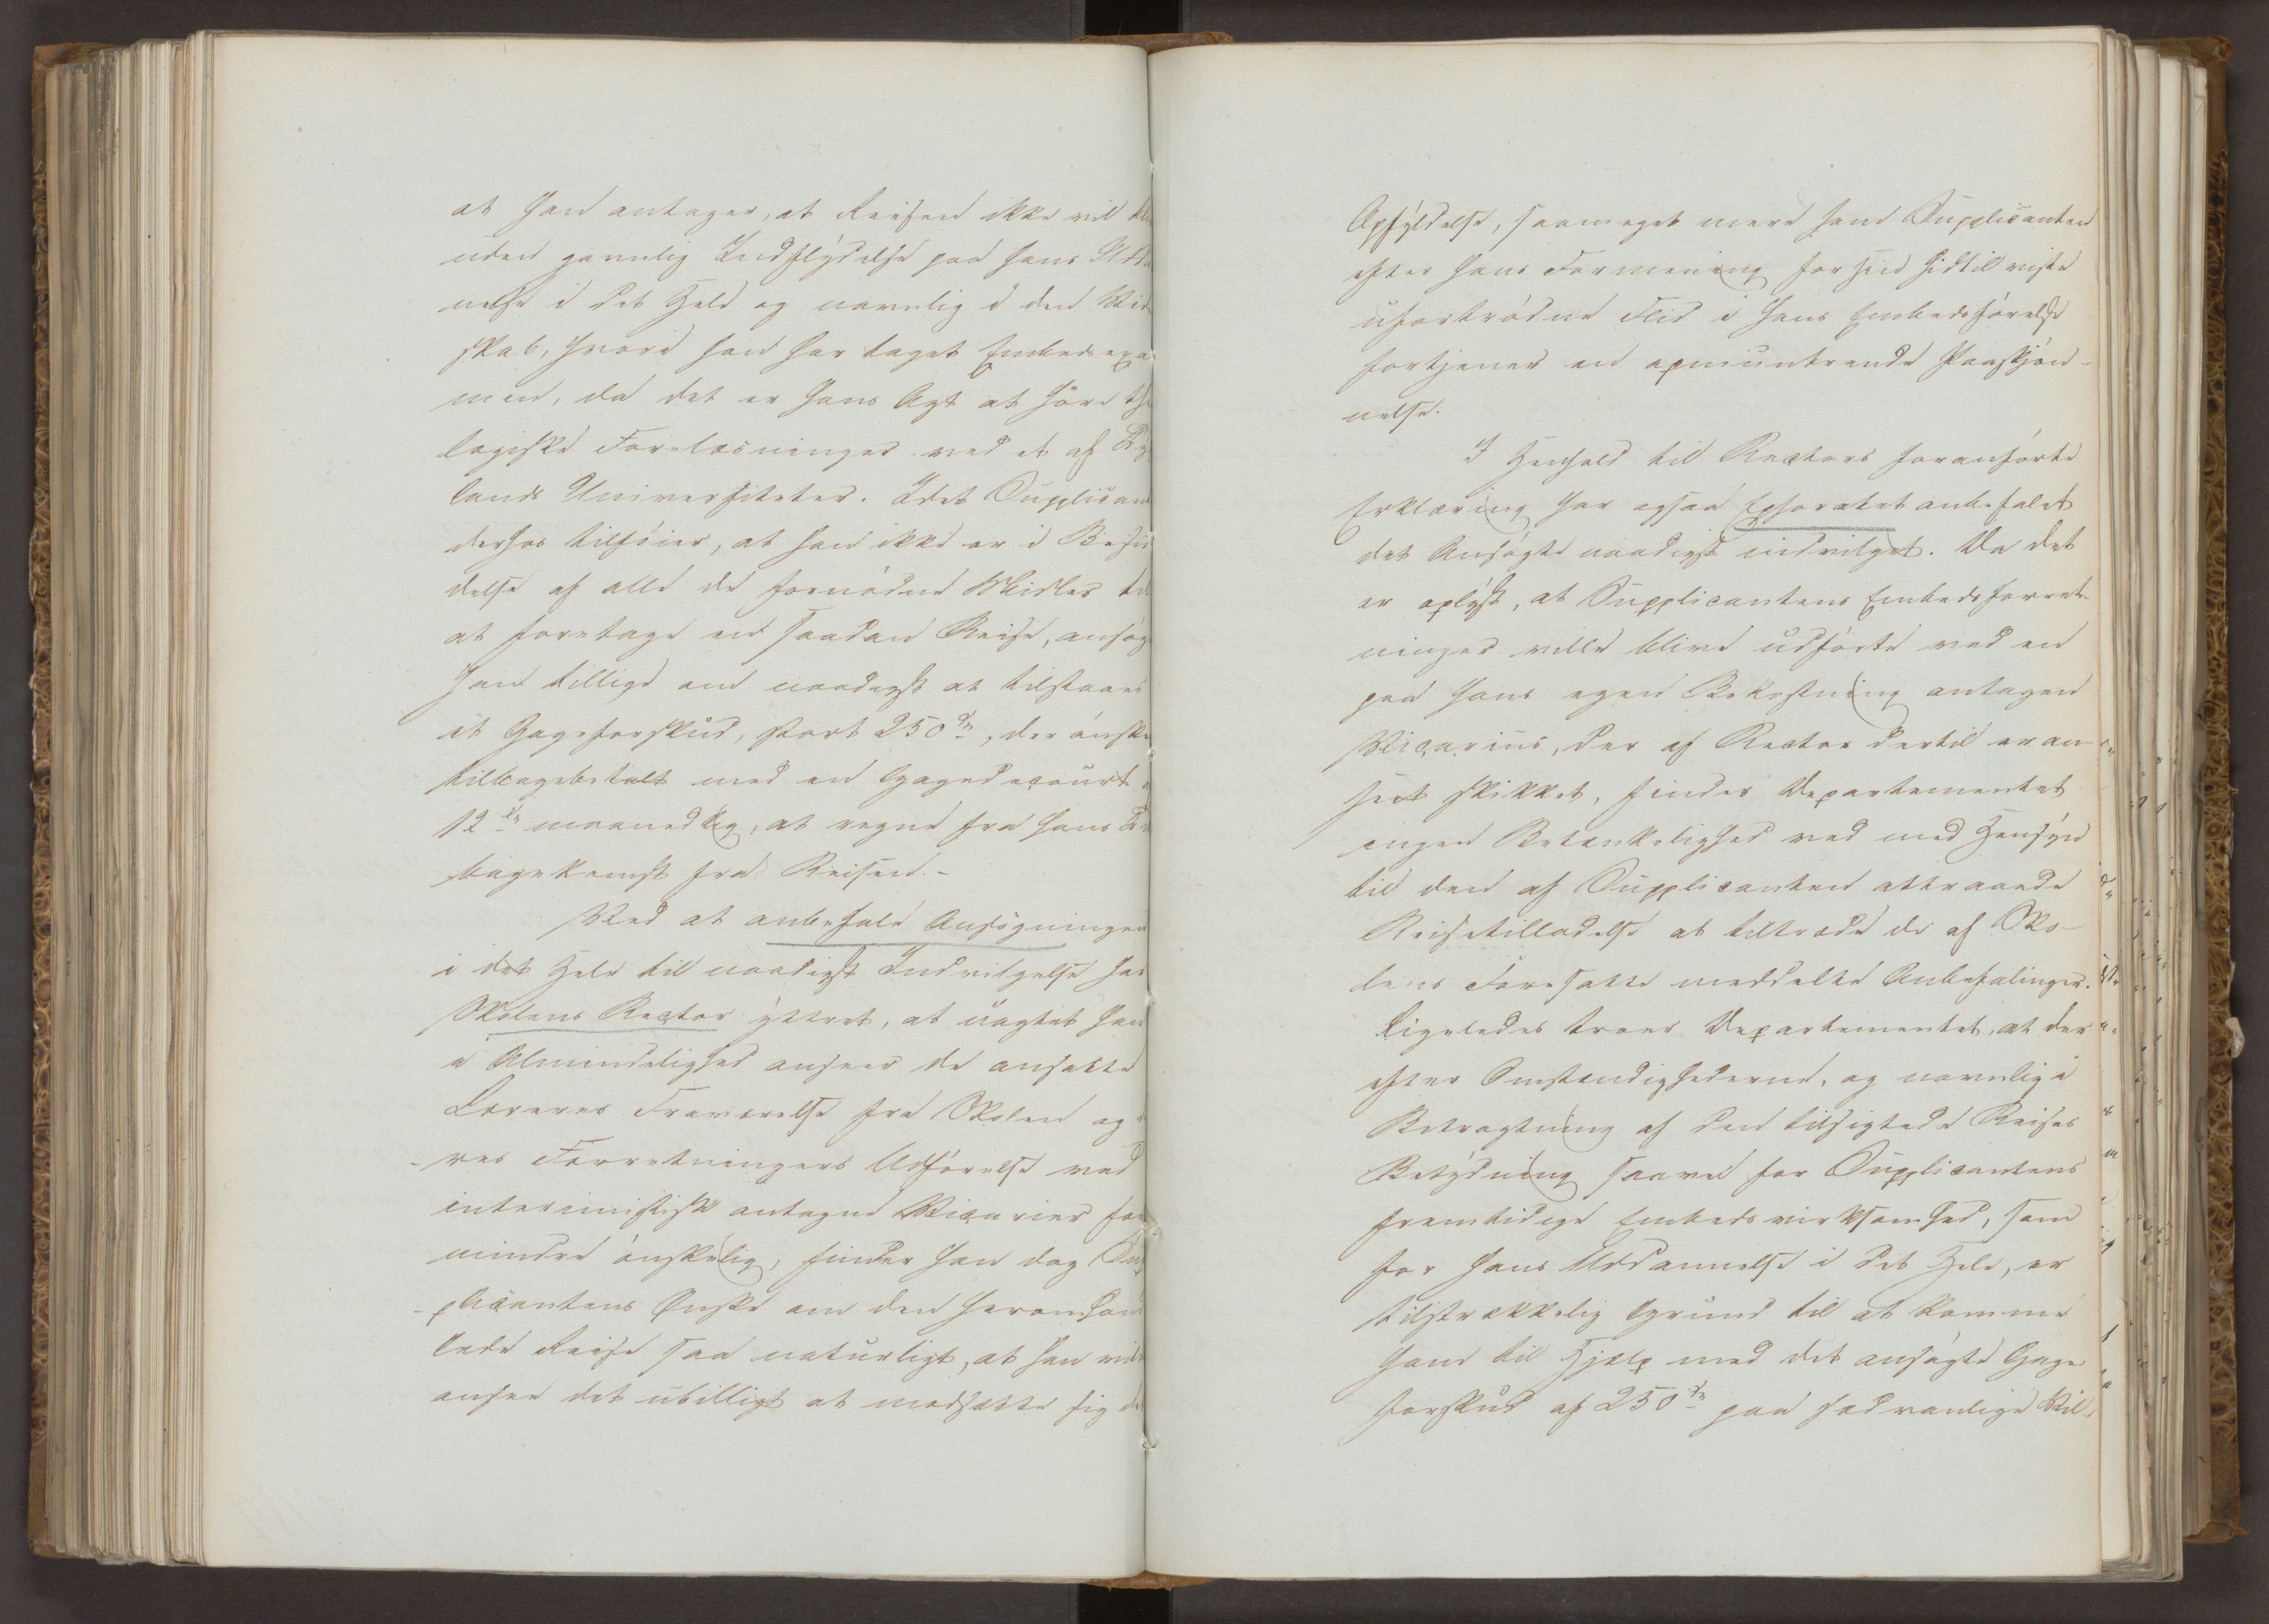 at han antager, at Reisen ikke vil bli
uden gavnlig Indflydelse paa hans Udda
nelse i det Hele og navnlig i den Vide
skab, hvori han har taget Embedsexa
men, da det er hans Agt at høre theo
logiske Forelæsninger ved et af Tyd
lands Universiteter. Idet Supplican
derhos tilføier, at han ikke er i Besid
delse af alle de fornødne Midler til
at foretage en saadan Reise, ansøg
han tillige om naadigst at tilstaaes
et Gageforskud, stort 250 Sp, der ønske
tilbagebetalt med en Gagedecourt a
12 Sp maanedlig, at regne fra hans Til
bagekomst fra Reisen.-
Ved at anbefale Ansøgningen
i det Hele til naadigst Indvilgelse har
Skolens Rector yttret, at uagtet han
i Almindelighed anseer de ansatte
Læreres Fraværelse fra Skolen og
-res Forretningers Udførelse ved
interimistisk antagne Vicarier for
mindre ønskelig, finder han dog Sup
-plicantens Ønske om den heromhand
lede Reise saa naturligt, at han vild
ansee det ubilligt at modsætte sig de
Opfyldelse, saameget mere som Supplicanten
efter hans Formening for sin hidtil viste
ufortrødne Flid i hans Embedsførelse
fortjener en opmuntrende Paaskjøn-
nelse.
I Henhold til Rectors foranførte
Erklæring har ogsaa Ephoratet anbefalet
det Ansøgte naadigst indvilget. Da det
er oplyst, at Supplicantens Embedsforret-
ninger ville blive udførte ved en
paa hans egen Bekostning antagen
Vicarius, der af Rector dertil er an-
seet skikket, finder Departementet
ingen Betænkelighed ved med Hensyn
til den af Supplicanten attraaede
Reisetilladelse at tiltræde de af Sko-
lens Foresatte meddelte Anbefalinger.
Ligeledes troer Departementet, at der
efter Omstændighederne, og navnlig i
Betragtning af den tilsigtede Reises
Betydning saavel for Supplicantens
fremtidige Embedsvirksomhed, som
for hans Uddannelse i det Hele, er
tilstrækkelig Grund til at komme
ham til Hjælp med det ansøgte Gage
forskud af 250 Sp paa sædvanlige Vil-